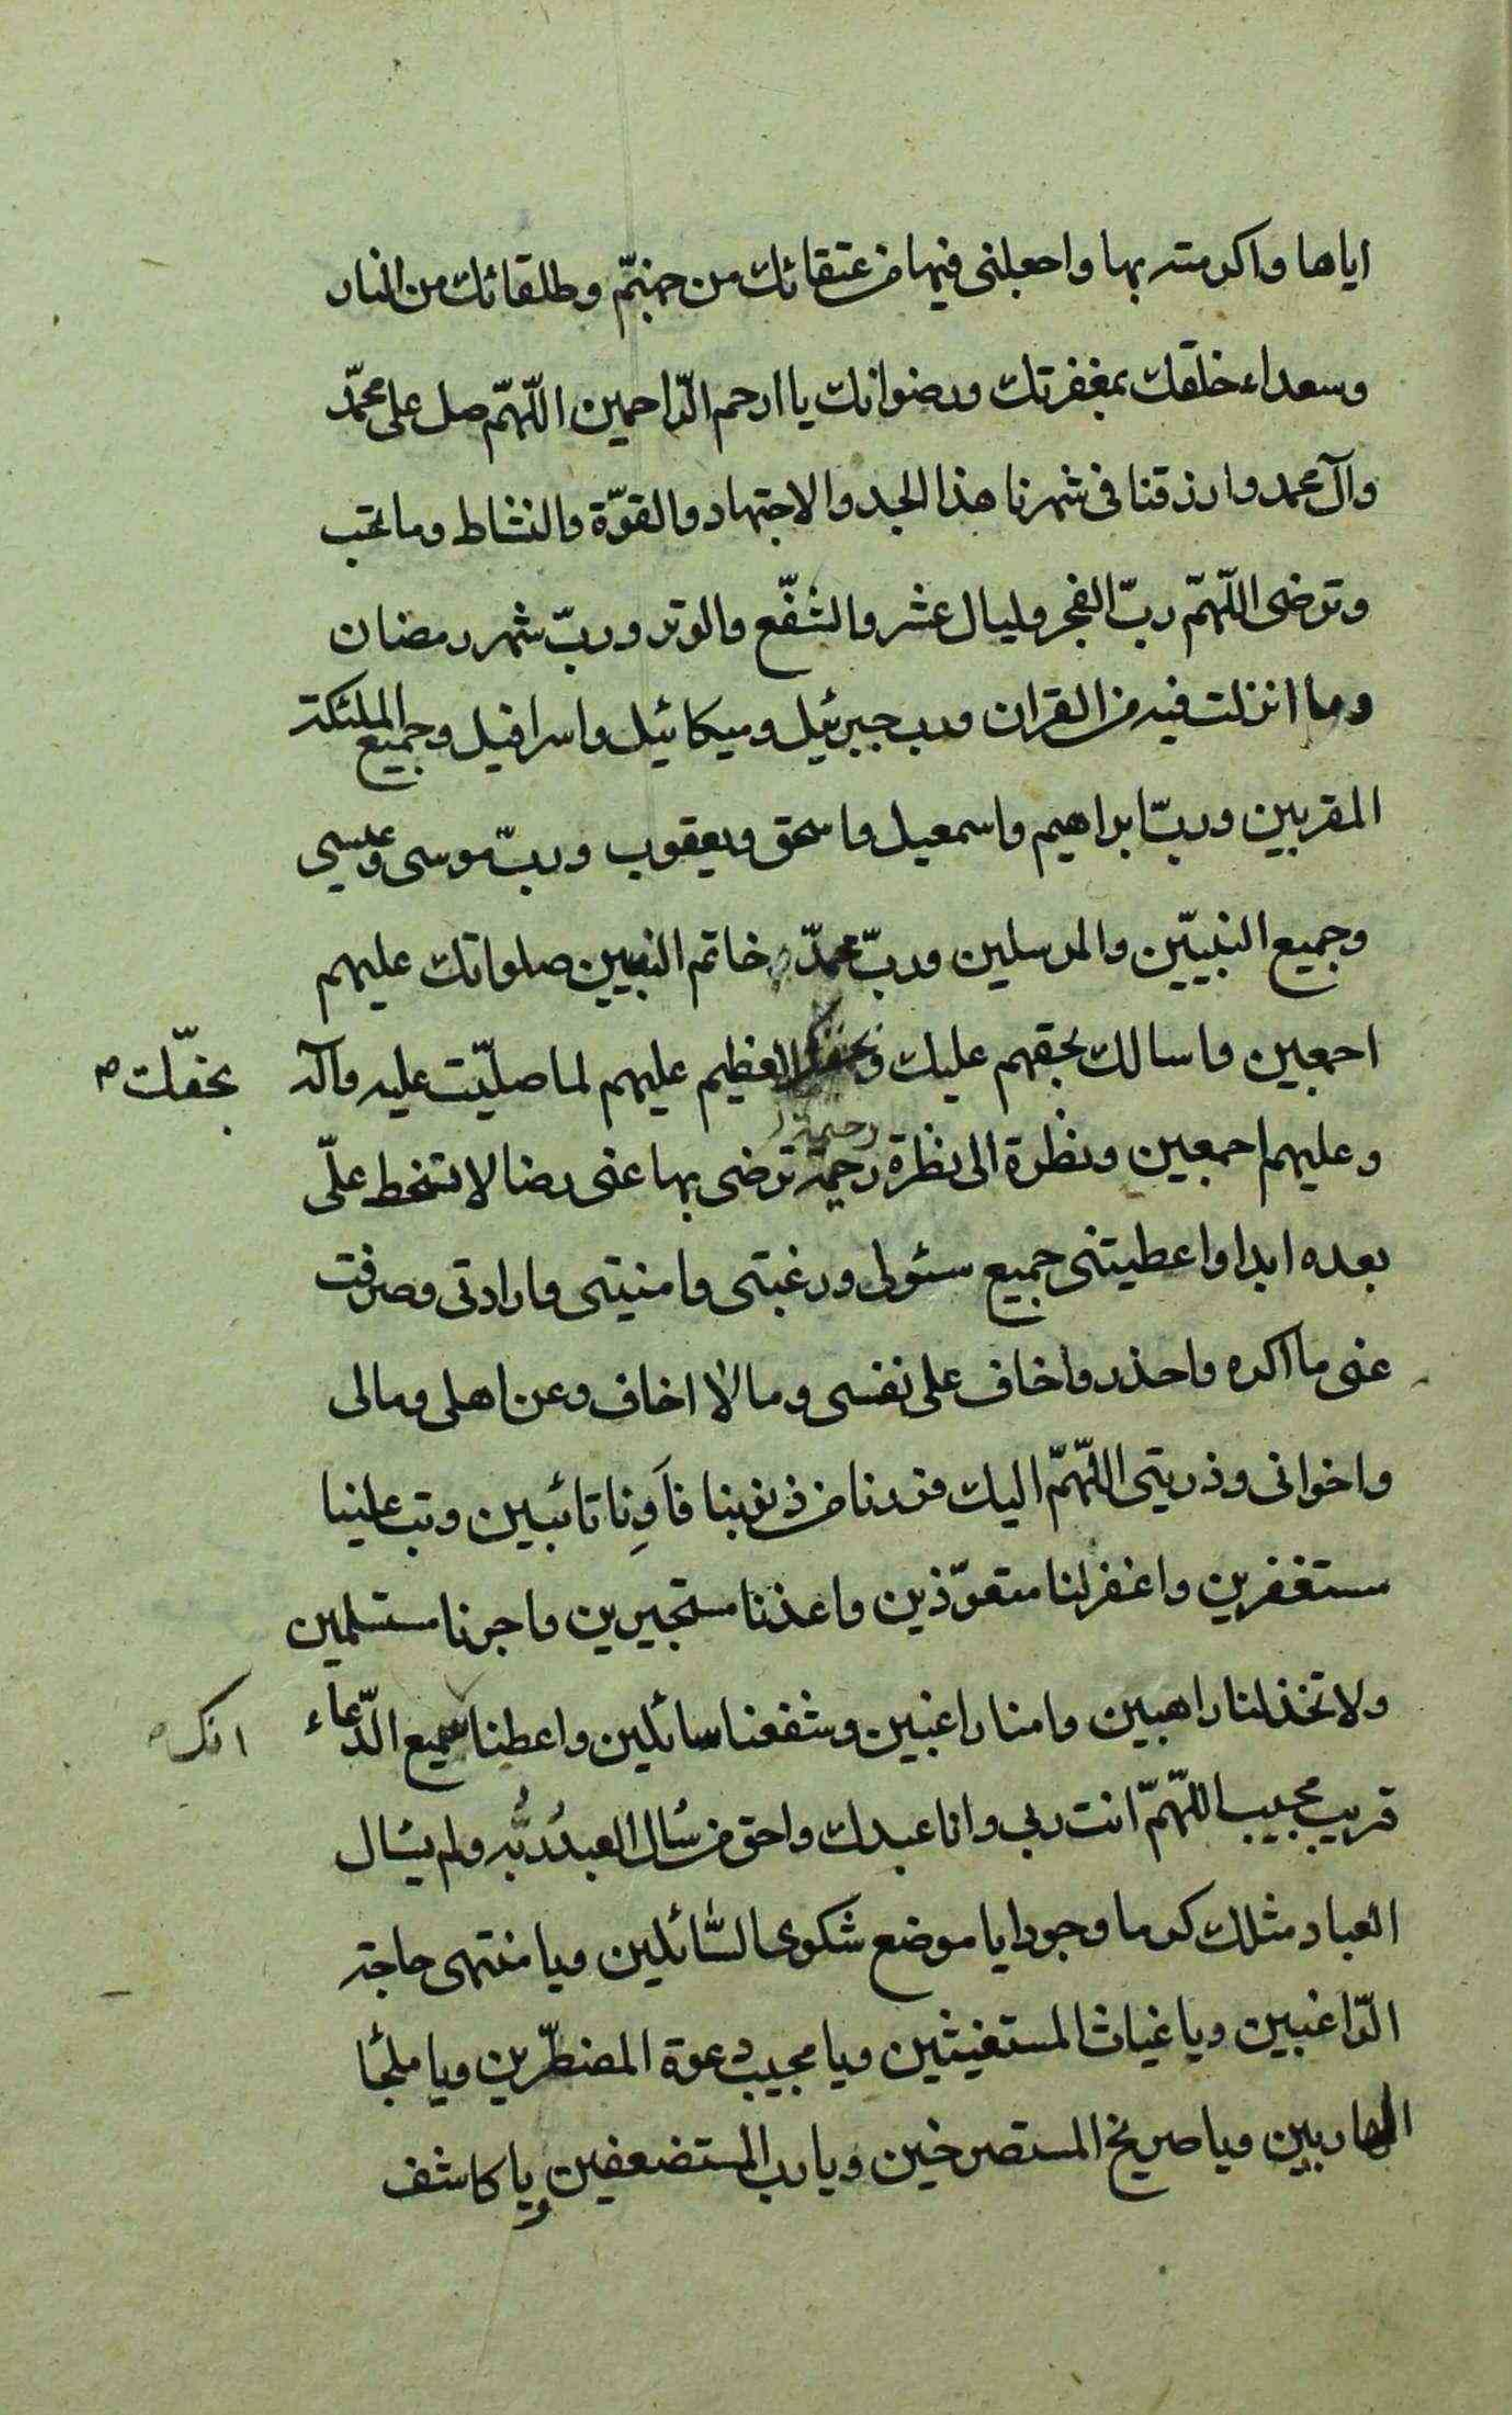 اياها واكرمته بها واجعلنى فيها من عتقائك من جهنّم وطلقائك من النار
وسعداء خلقك بمغفرتك ورضوانك يا ارحم الرّاحمين اللّهمّ صل على محمّد
وآل محمد وارزقنا فى شهرنا هذا الجد والاجتهاد والقوّة والنشاط وما تحب
وترضى اللّهمّ ربّ الفجر وليال عشر والشّفع والوتر وربّ شهر رمضان
وما انزلت فيه من القران ورب جبرئيل وميكائيل واسرافيل وجميع الملئكة
المقربين وربّ ابراهيم واسمعيل واسحق ويعقوب وربّ موسى وعيسى
وجميع النبيّين والمرسلين وربّ محمّد خاتم النبيين صلواتك عليهم
اجمعين واسالك بحقهم عليك وبحقك العظيم عليهم لما صليّت عليه وآله
بحقّك ص
وعليهم اجمعين ونظرة الى نظرة رحيمة ترضى بها عنى رضا لا تسخط علّى
رحيمة
بعده ابدا واعطيتنى جميع سئولى ورغبتى وامنيتى وارادتى وصرفت
عنى ما اكره واحذر واخاف على نفسى وما لا اخاف وعن اهلى ومالى
واخوانى وذريتى اللّهمّ اليك فررنا من ذنوبنا فآوِنا تائبين وتب علينا
مستغفرين واغفر لنا متعوّذين واعذنا مستجيرين واجرنا مستسلمين
ولا تخذلنا راهبين وامنا راغبين وشفعنا سائلين واعطنا سميع الدّعاء
انك ص
قريب مجيب اللّهمّ انت ربى وانا عبدك واحق من سُال العبدُ ربُّه ولم يسُال
العباد مثلك كرما وجودا يا موضع شكوى السّائلين ويا منتهى حاجة
الرّاغبين ويا غياث المستغيثين ويا مجيب دعوة المضطرّين ويا ملجُا
الهاربين ويا صريخ المستصرخين ويا رب المستضعفين ويا كاشف